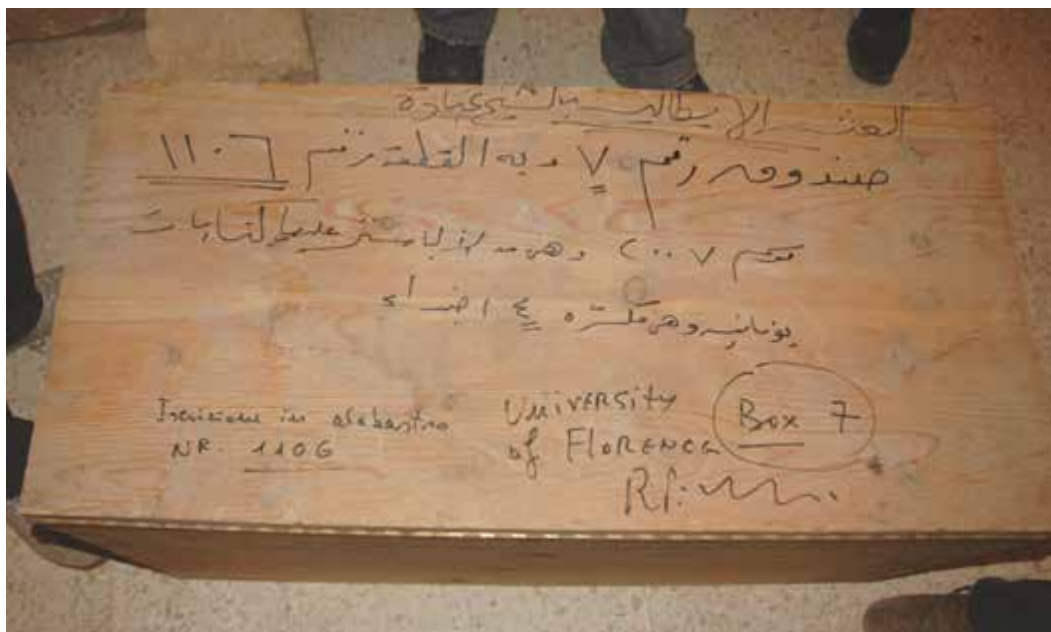 البعثة الإيطالية بالشيخ عبادة
صندوق رقم ٧ وبه القطعة رقم ١١٠٦
موسم ٢٠٠٧ وهى من الألباستر عليها كتابات
يونانيه وهى مكسره ٤ اجزاء
Iscrizione in alabastro
NR. 1106
University
of FLORENCE
Box 7